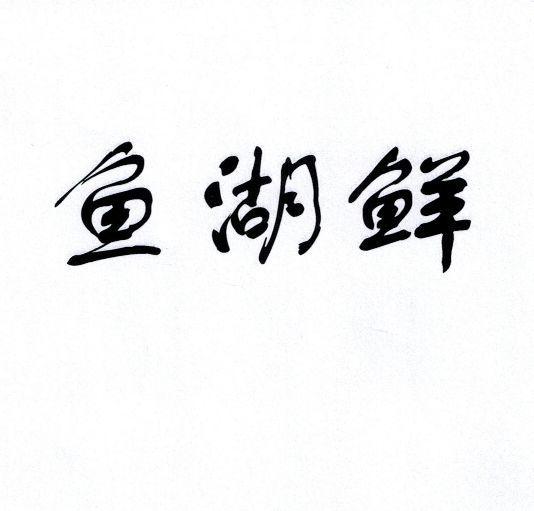 鱼湖鲜